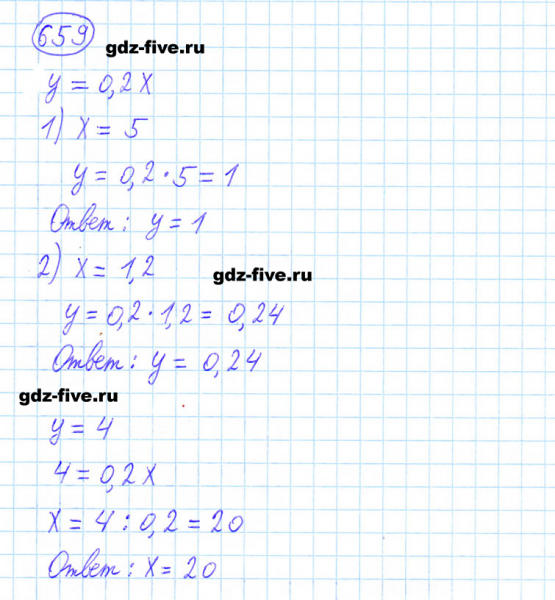 659 gdz-five.ru
y = 0,2x
1) x = 5
y = 0,2 · 5 = 1
Ответ: y = 1
2) x = 1,2
gdz-five.ru
y = 0,2 · 1,2 = 0,24
Ответ: y = 0,24
gdz-five.ru
y = 4
4 = 0,2x
x = 4 : 0,2 = 20
Ответ: x = 20